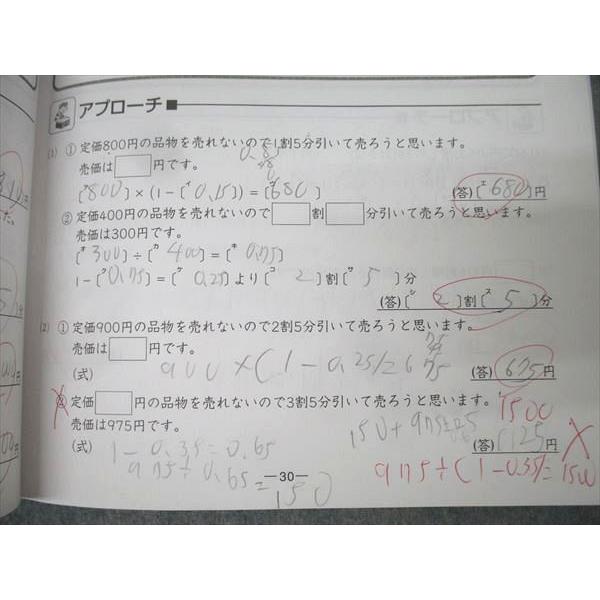 アプローチ
(1) ① 定価800円の品物を売れないので1割5分引いて売ろうと思います。
売価は 円です。
0.85
[800]×(1-[0.15])=[680]
(答)[680]円
② 定価400円の品物を売れないので 割 分引いて売ろうと思います。
売価は300円です。
[300]÷[400]=[0.75]
1-[0.75]=[0.25]より[2]割[5]分
(答)[2]割[5]分
(2) ① 定価900円の品物を売れないので2割5分引いて売ろうと思います。
売価は 円です。
(式) 900×(1-0.25)=675
(答) 675円
② 定価 円の品物を売れないので3割5分引いて売ろうと思います。
売価は975円です。
1500
(式) 1-0.35=0.65
975÷0.65=150
150+975=
(答) 1125円
975÷(1-0.35)=1500
—30—